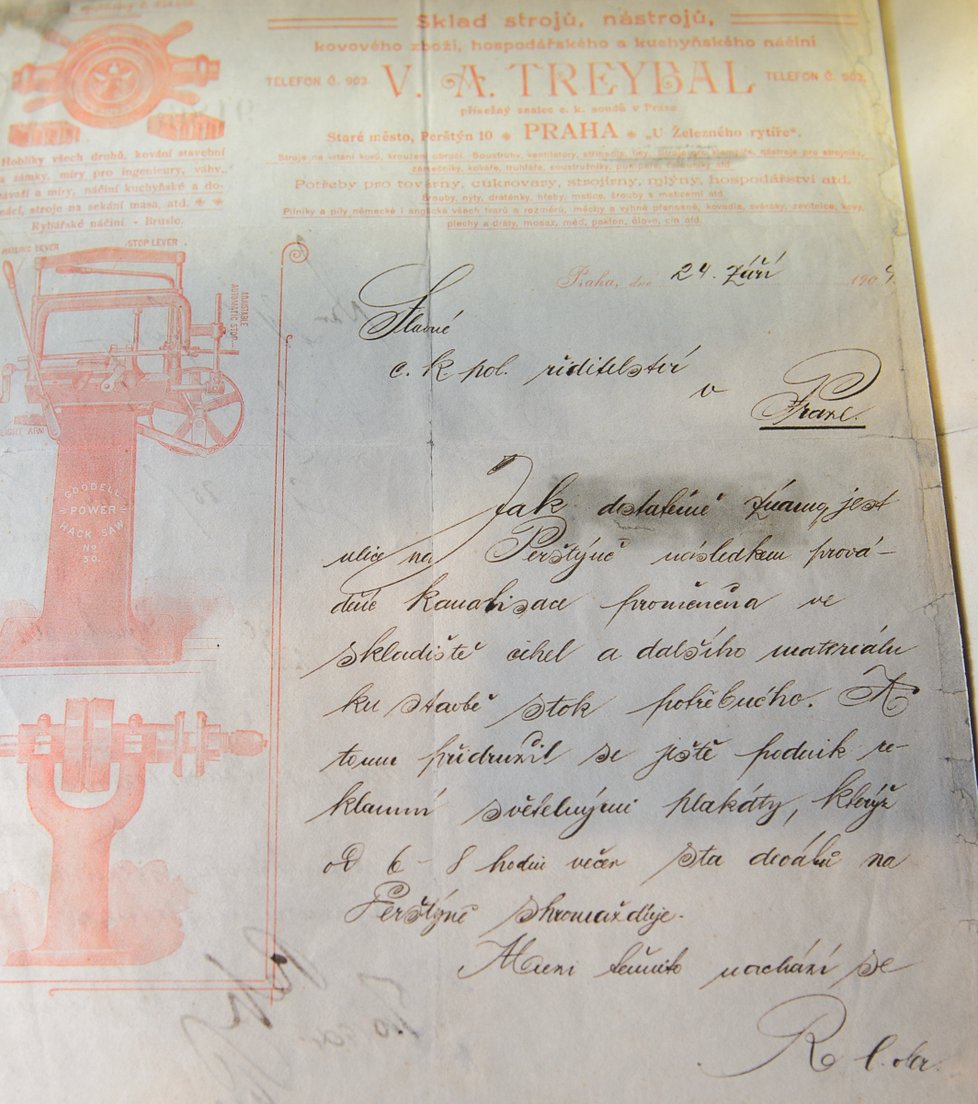 Sklad strojů, nástrojů,
kovového zboží, hospodářského a kuchyňského náčiní
TELEFON Č. 903. V. A. TREYBAL TELEFON Č. 903.
přísežný znalec c. k. soudů v Praze
Staré město, Perštýn 10 PRAHA „U Železného rytíře“.
Stroje na vrtání kovů, kroužení obručí. Soustruhy, ventilátory, nástroje pro strojníky,
zámečníky, kováře, truhláře, soustružníky,
Potřeby pro továrny, cukrovary, strojírny, mlýny, hospodářství atd.
Šrouby, nýty, drátěnky, hřeby, matice, šrouby s maticemi atd.
Pilníky a pily německé i anglické všech tvarů a rozměrů, měchy a výhně přenosné, kovadla, svěráky, závitnice, kovy,
plechy a dráty, mosaz, měď, pakfon, olovo, cín atd.
Hoblíky všech druhů, kování stavební
a zámky, míry pro ingenieury, váhy,
závaží a míry, náčiní kuchyňské a do-
mácí, stroje na sekání masa, atd.
Rybářské náčiní - Brusle.
STOP LEVER
ADJUSTABLE
AUTOMATIC STOP
GOODELL
POWER
HACK SAW
No
50
Praha, dne 24. Září 190
Slavné
c. k pol. řiditelství
v
Praze.
Jak dostatečně známo, jest
ulice na Perštýně následkem prová-
děné kanalisace proměněna ve
skladiště cihel a dalšího materiálu
ku stavbě stok potřebného. K
tomu přidružil se ještě podnik re-
klamní světelnými plakáty, kterýž
od 6 - 8 hodin večer sta diváků na
Perštýně shromažďuje.
Mezi těmito nachází se